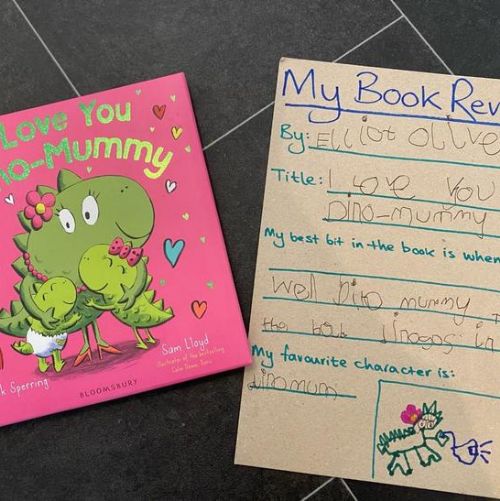 Love You
no-Mummy
k Sperring
Sam Lloyd
illustrator of the bestselling
BLOOMSBURY
My Book Rev
By: Elliot Olive
Title: I love You
Dino-mummy
My best bit in the book is when
Well Dino mummy
the in
My favourite character is:
Dinomum